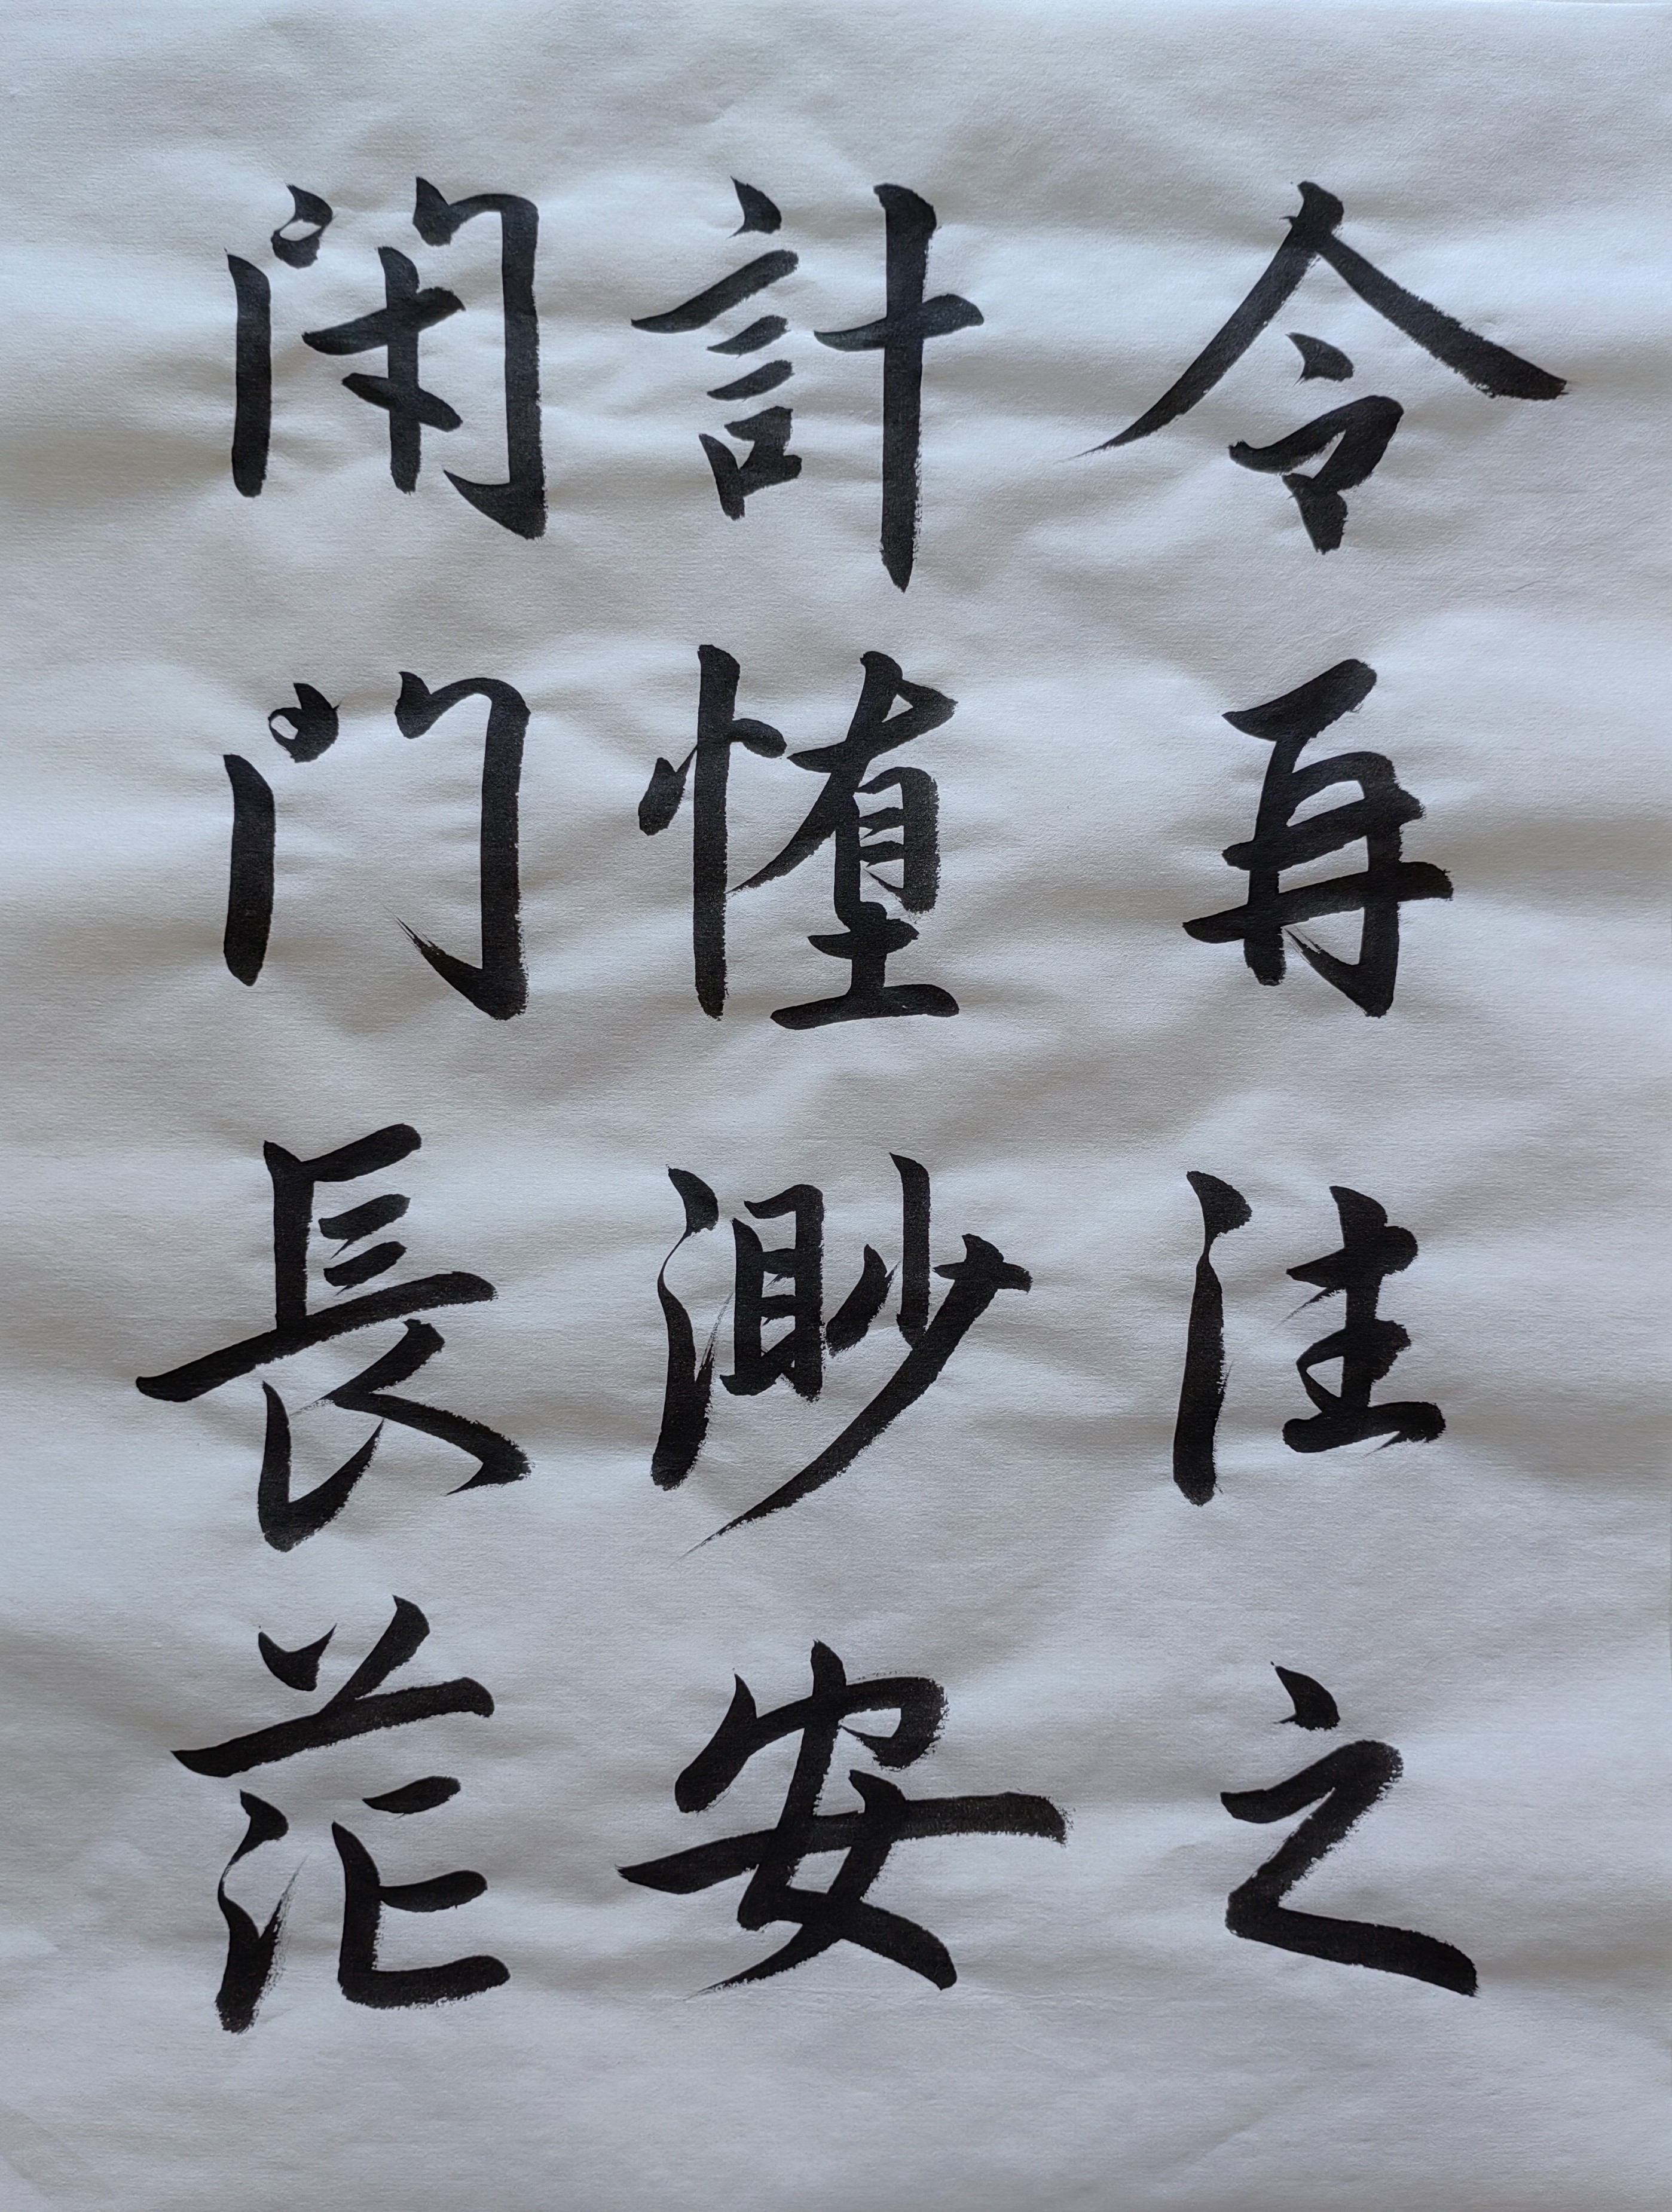 令再往之
計惰渺安
閑門長茫